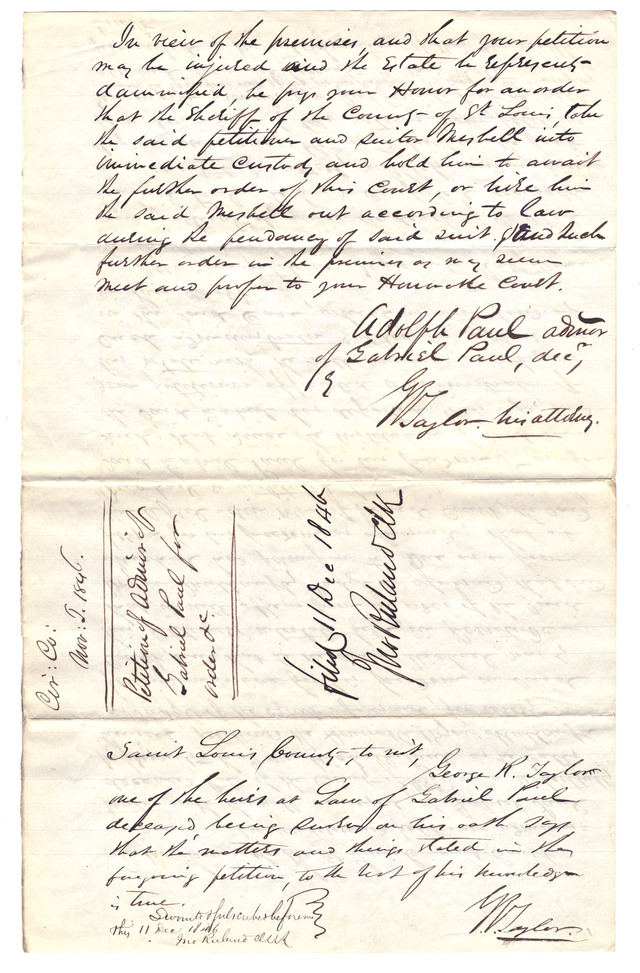 In view of the premises, and that your petition
may be injured and the Estate he represents
damnified, he prays your Honor for an order
that the Sheriff of the County of St Louis, take
the said petitioner and suitor Meshell into
immediate custody and hold him to await
the further order of this Court, or hire him
the said Meshell out according to law
during the pendancy of said suit, and such
further order in the premises as may seem
meet and proper to your Honorable Court.
Adolph Paul admor
of Gabriel Paul, decd,
By
G R Taylor his attorney.
Cir: Co:
Nov: T. 1846.
Petition of Admor of
Gabriel Paul for
order &c
filed 11 Dec 1846
Jno Ruland Clk
Saint Louis County, to wit,
George R. Taylor
one of the heirs at Law of Gabriel Paul
deceased, being sworn on his oath says
that the matters and things stated in the
foregoing petition, to the best of his knowledge
is true.
G. R. Taylor
Sworn to & subscribed before me
this 11 Dec 1846
Jno Ruland Clk